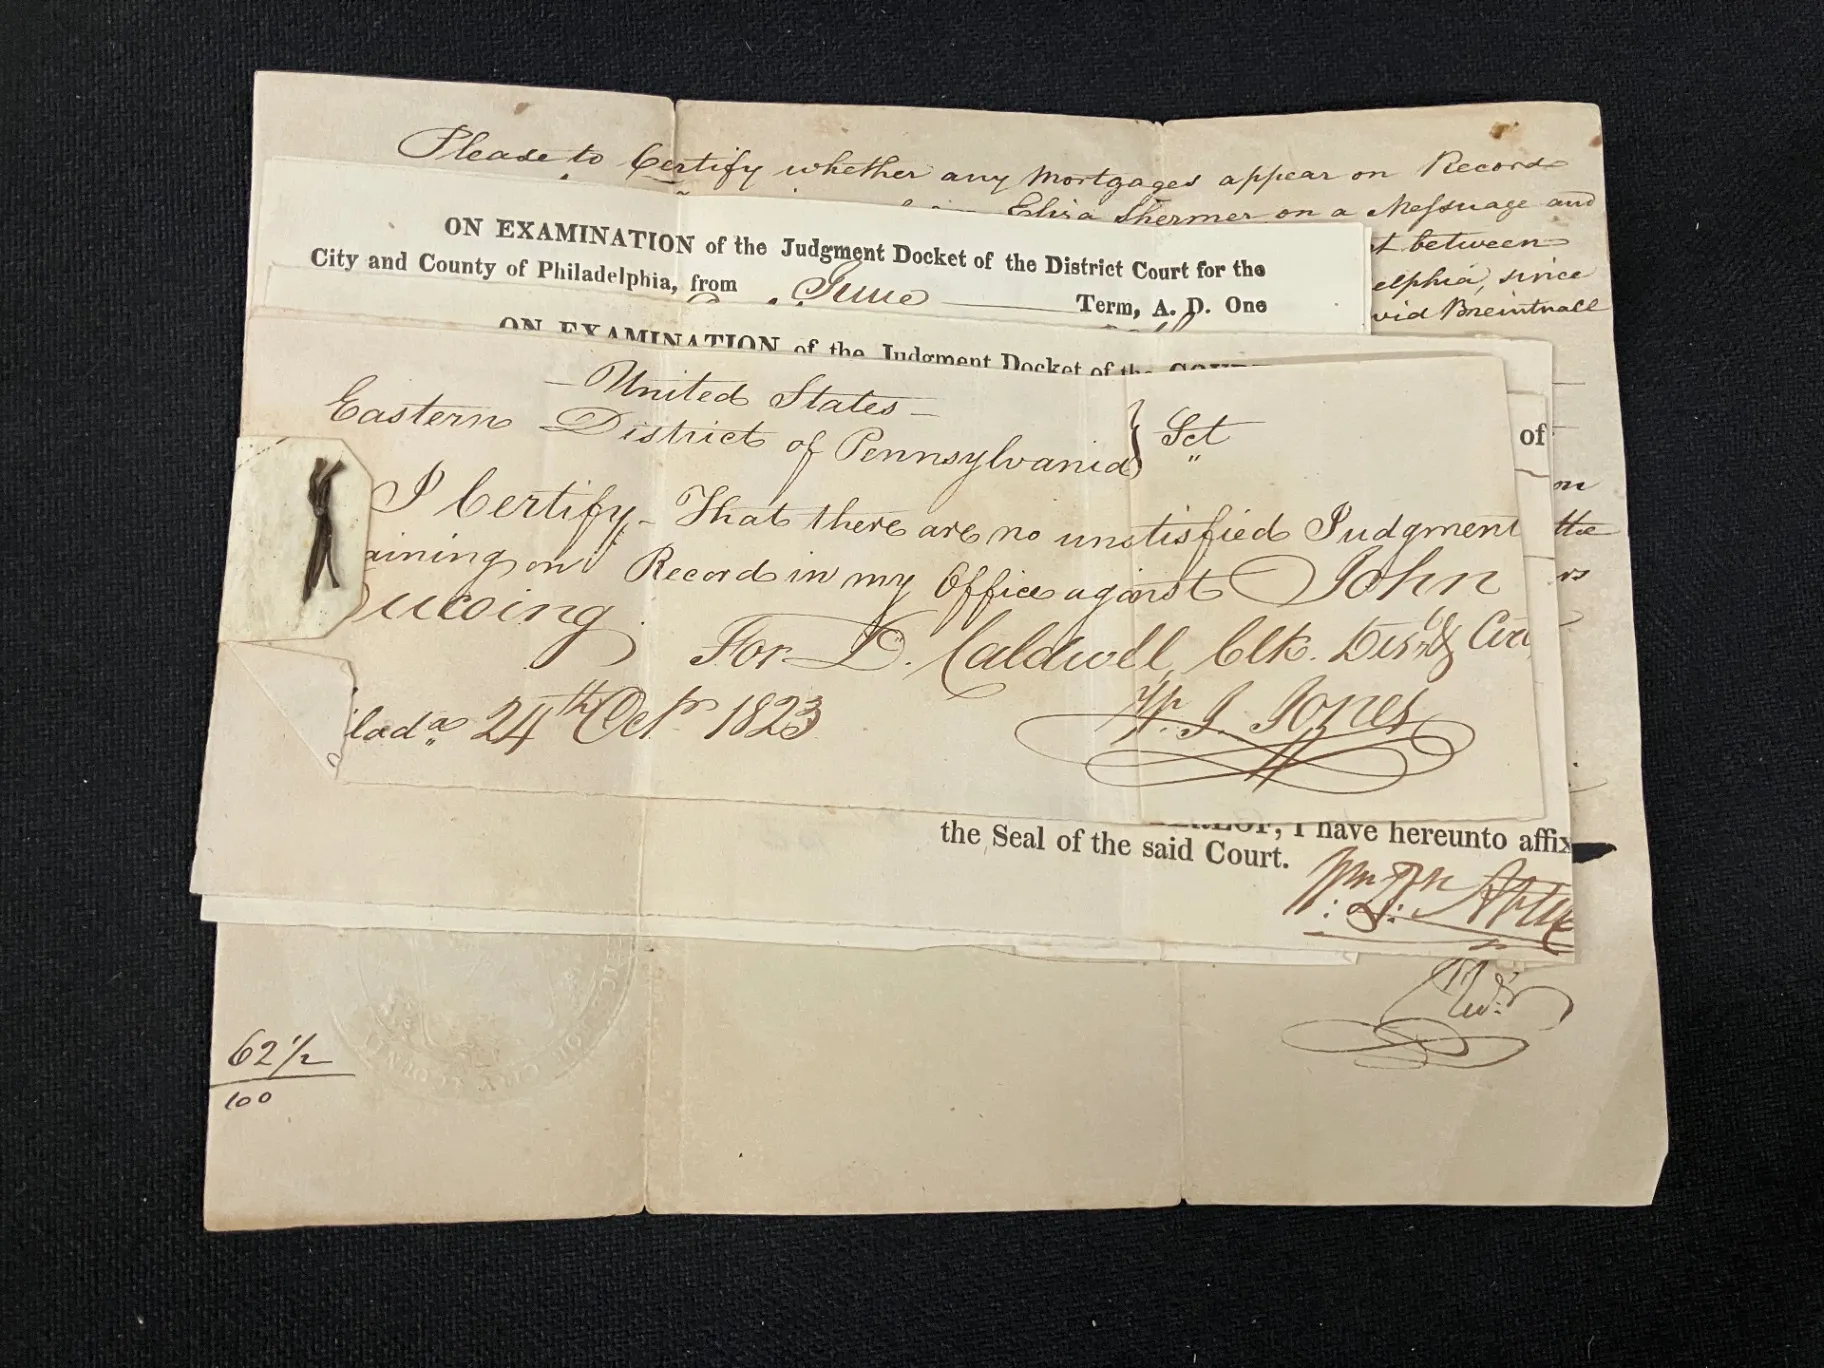 Please to Certify whether any Mortgages appear on Record
Eliza Shermer on a Messuage and
between
elphia, since
vid Breintnall
ON EXAMINATION of the Judgment Docket of the District Court for the
City and County of Philadelphia, from June Term, A. D. One
ON EXAMINATION of the Judgment Docket of the
of
on
the
rs
— United States —
Eastern District of Pennsylvania } Sct
I Certify – That there are no unsatisfied Judgment
aining on Record in my Office against John
ucoing
For D. Caldwell, Clk. Dis. & Cou
ilada 24th Octr 1823
W. J. Jones
I have hereunto affix
the Seal of the said Court.
62 1/2
100